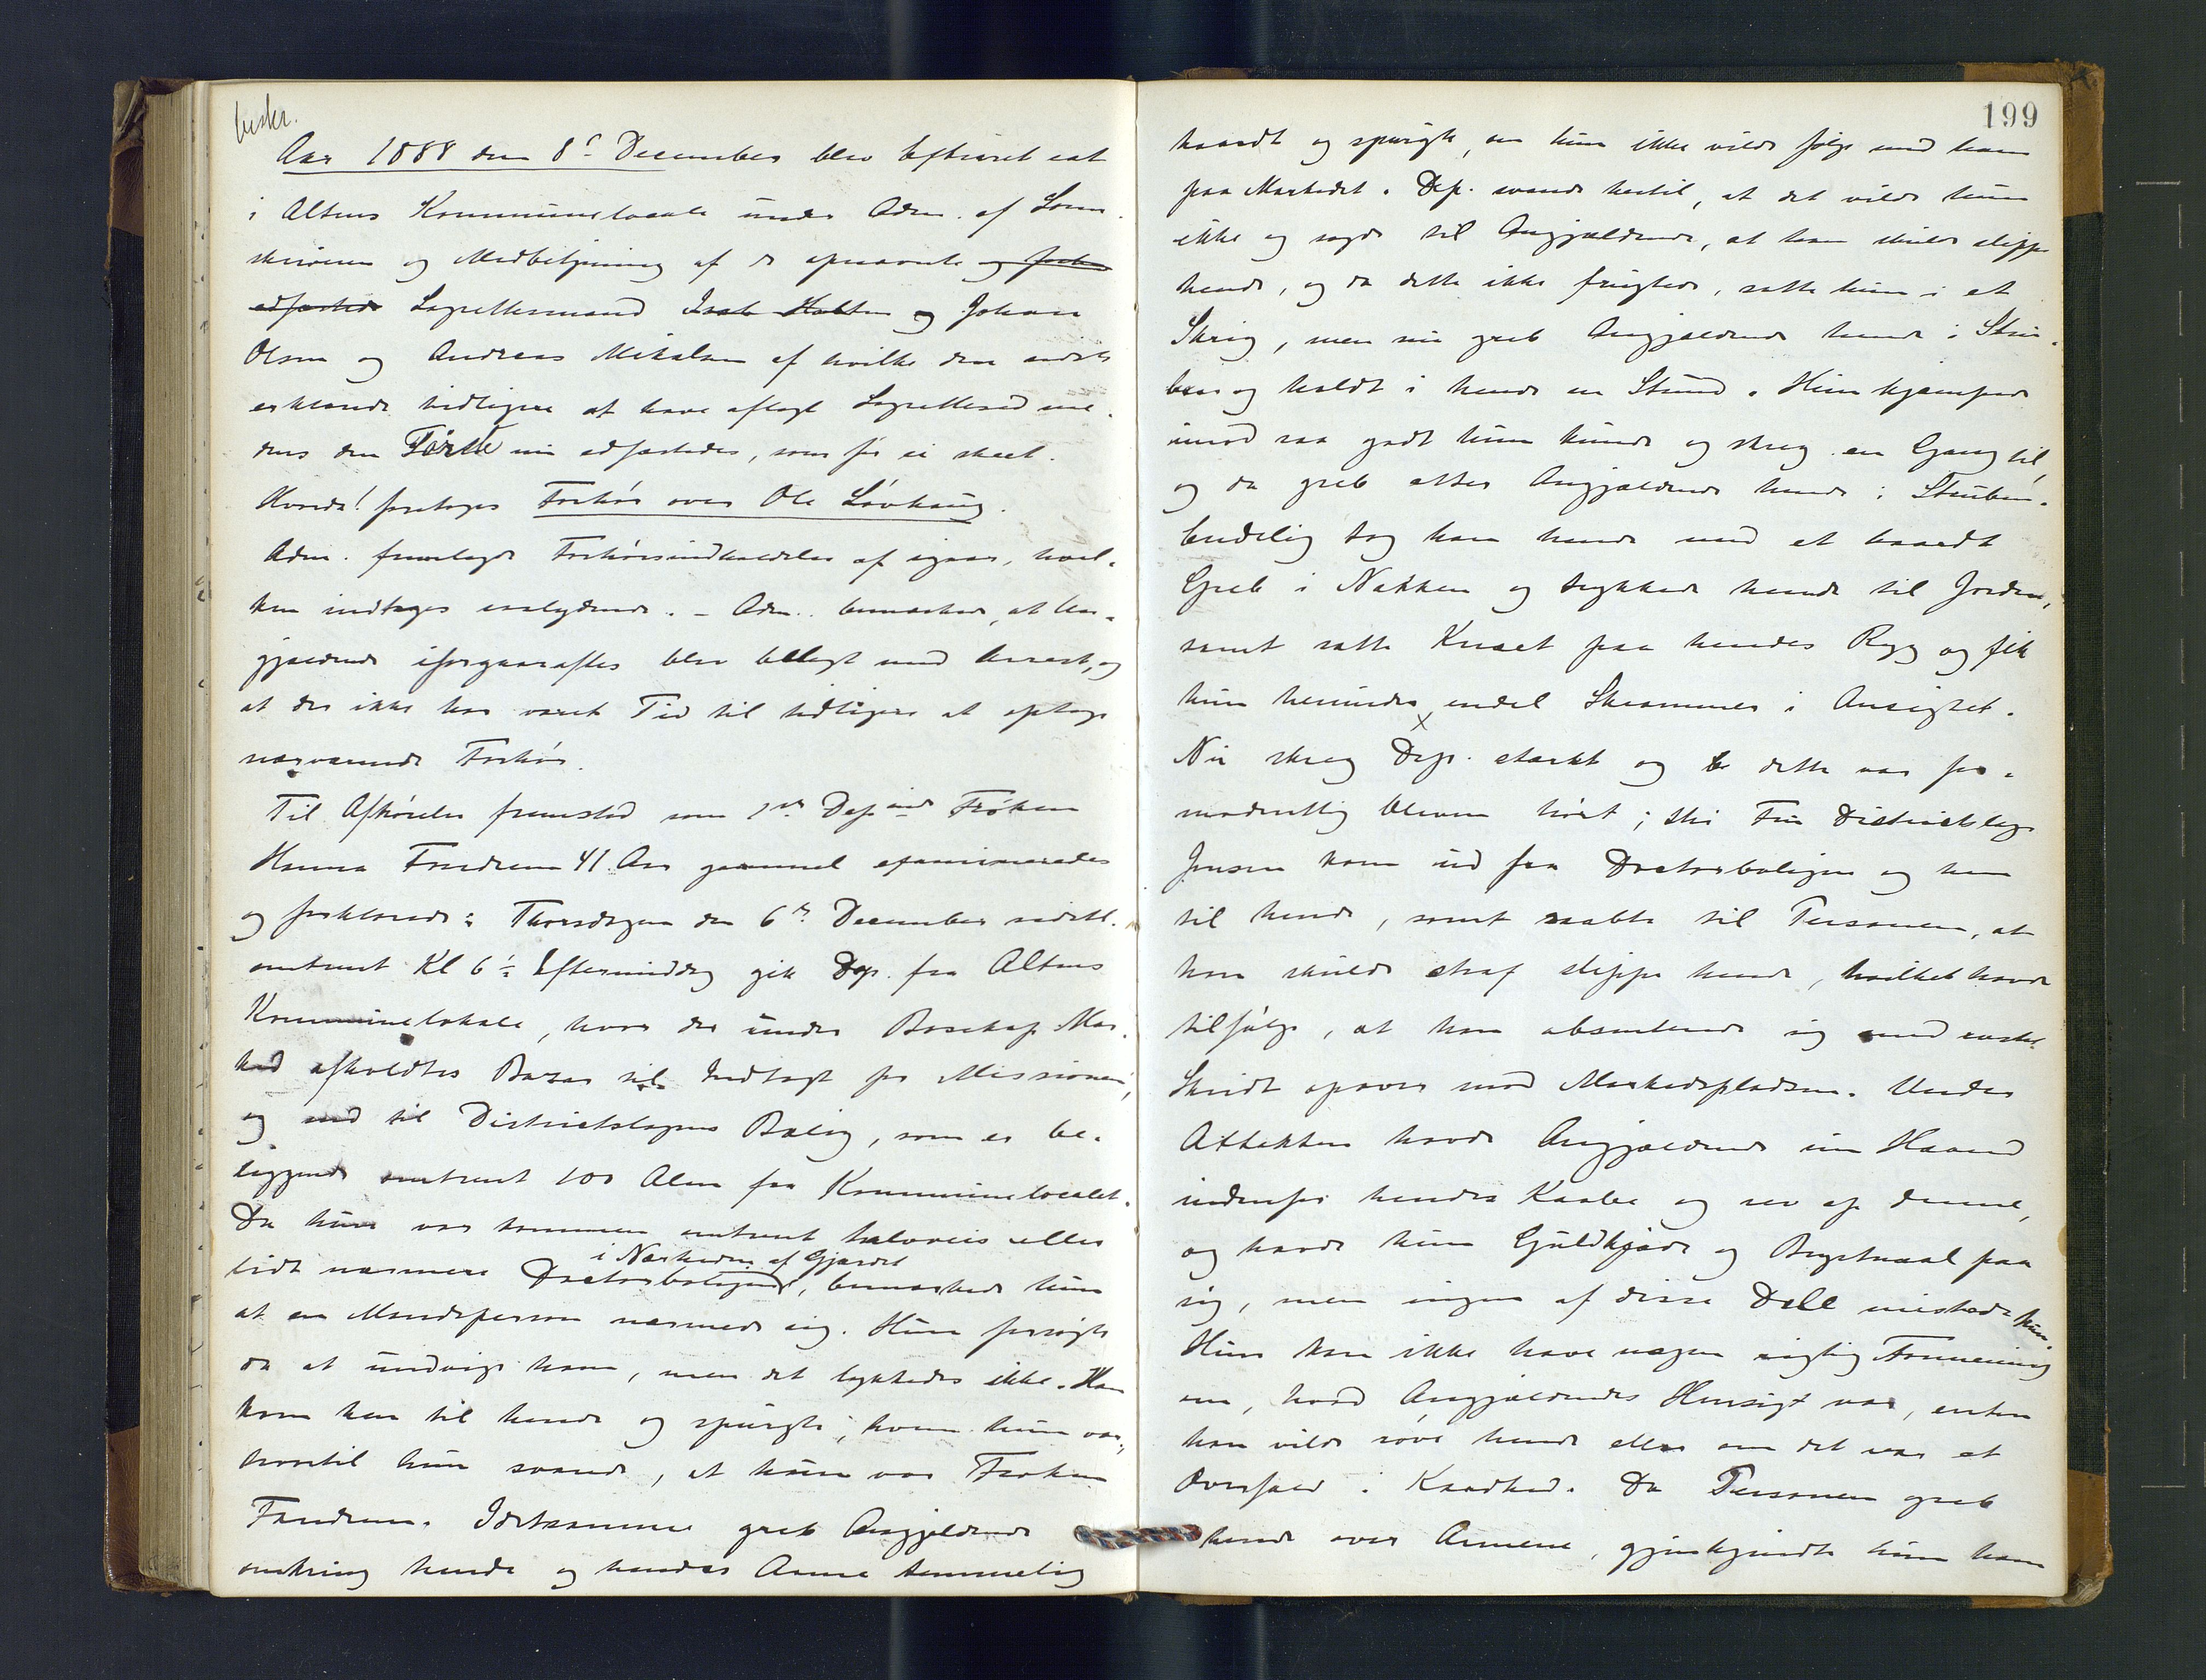 beskr.
Aar 1888 den 8de December blev Extraret sat
i Altens Kommunelocale under Adm. af Soren-
skriveren og Medbetjening af de opnævnte og forhen
edfæstede Lagrettesmænd Isak Holten og Johan
Olsen og Andreas Mikalsen af hvilke den sidste
erklærede tidligere at have aflagt Lagrettesed me-
dens den Første nu edfæstedes, som før ei skeet.
Hvorda! foretoges Forhør over Ole Løvhaug.
Adm. fremlagde Forhørsindkaldelse af igaar, hvil-
ken indtages saalydende. – Adm. bemærkede, at An-
gjældende iforgaaraftes blev belagt med Arrest, og
at der ikke har været Tid til tidligere at optage
nærværende Forhør.
Til Afhørelse fremstod som 1ste Depind Frøken
Hanna Fandrem 41 Aar gammel examineredes
og forklarede: Thorsdagen den 6te December sidstl.
omtrent Kl 6½ Eftermiddag gik Dep. fra Altens
Kommunelokale, hvor der under Bosekop Mar-
ked afholdtes Bazar til Indtægt for Missionen,
og ned til Districtslægens Bolig, som er be-
liggende omtrent 100 Alen fra Kommunelocalet.
Da hun var kommen omtrent halvveis eller
i Nærheden af Gjærdet
lidt nærmere Doctorboligen, bemærkede hun
at en Mandsperson nærmede sig. Hun forsøgte
da at undvige ham, men det lykkedes ikke. Han
kom hen til hende og spurgte, hvem hun var,
hvortil hun svarede, at hun var Frøken
Fandrem. Idetsamme greb Angjældende
omkring hende og hendes Arme temmelig
199
haardt og spurgte, om hun ikke vilde følge med ham
paa Markedet. Dep. svarede hertil, at det vilde hun
ikke og sagde til Angjældende, at han skulde slippe
hende, og da dette ikke frugtede, satte hun i et
Skrig, men nu greb Angjældende hende i Stru-
ben og holdt i hende en Stund. Hun kjæmpede
imod saa godt hun kunde og skreg en Gang til,
og da greb atter Angjældende hende i Struben.
Endelig tog han hende med et haardt
Greb i Nakken og trykkede hende til Jorden,
samt satte Knæet paa hendes Ryg og fik
hun herunder endel Skrammer i Ansigtet.
x
Nu skreg Dep. stærkt og dette var for-
modentlig bleven hørt; thi Fru Districtslæge
Jensen kom ud fra Doctorboligen og hen
til hende, samt raabte til Personen, at
han skulde straf slippe hende, hvilket havde
tilfølge, at han absenterede sig med raske
Skridt opover mod Markedspladsen. Under
Attakken havde Angjældende sin Haand
indenfor hendes Kaabe og rev op denne,
og havde hun Guldkjæde og Brystnaal paa
sig, men ingen af disse Dele mistede hun.
Hun kan ikke have nogen rigtig Formening
om, hvad Angjældendes Hensigt var, enten
han vilde røve hende eller om det var et
Overfald i Kaadhed. Da Personen greb
hende over Armene, gjenkjendte hun ham